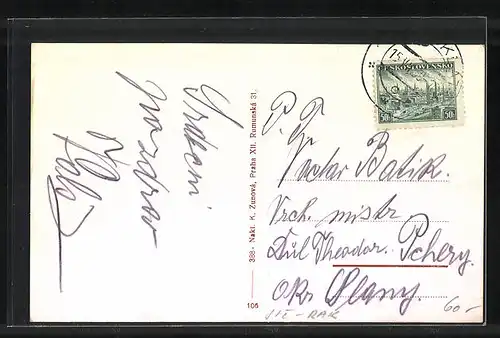 Srdečný
pozdrav
388- Nakl. K. Zunová, Praha XII. Rumunská 31.
106
ČESKOSLOVENSKO
50h
50h
P. T.
Pan
Batik.
Vrch. mistr
Důl Theodor. Pchery.
okr Slany.
60-